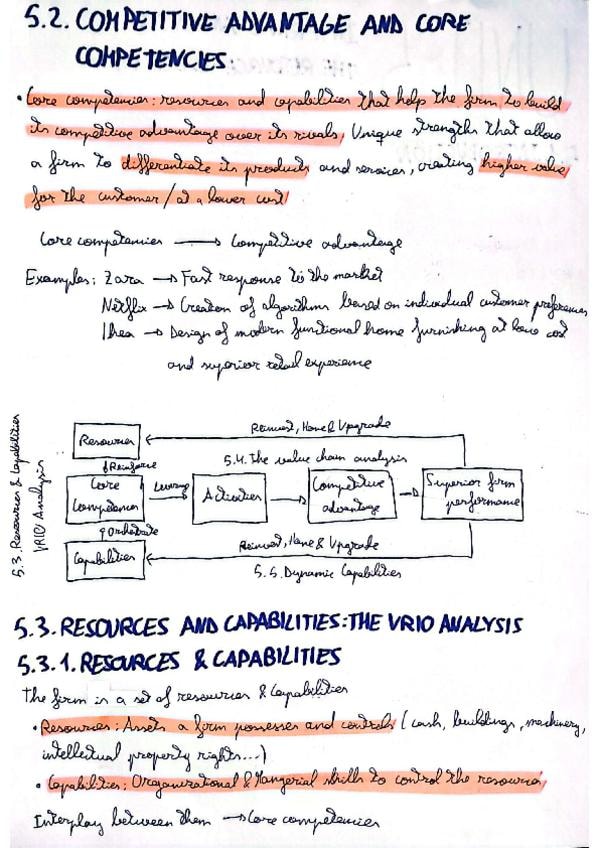 5.2. COMPETITIVE ADVANTAGE AND CORE
COMPETENCIES
• Core competencies: resources and capabilities that help the firm to build
its competitive advantage over its rivals, Unique strengths that allow
a firm to differentiate its products and services, creating higher value
for the customer / at a lower cost
Core competencies → Competitive advantage
Examples: Zara → Fast response to the market
Netflix → Creation of algorithms based on individual customer preferences
Ikea → Design of modern functional home furnishing at low cost
and superior retail experience
5.3. Resources & Capabilities
VRIO Analysis
Reinvest, Hone & Upgrade
Resources
Reinforce
5.4. The value chain analysis
Core
Competences
Leverage
Activities
Competitive
advantage
Superior firm
performance
Orchestrate
Capabilities
Reinvest, Hone & Upgrade
5.5. Dynamic Capabilities
5.3. RESOURCES AND CAPABILITIES: THE VRIO ANALYSIS
5.3.1. RESOURCES & CAPABILITIES
The firm is a set of resources & Capabilities
• Resources: Assets a firm possesses and controls (cash, buildings, machinery,
intellectual property rights...)
• Capabilities: Organizational & Mangerial skills to control the resources,
Interplay between them → Core competencies